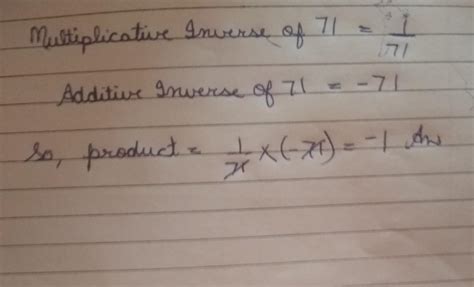 Multiplicative Inverse of 71 = 1/71
Additive Inverse of 71 = -71
So, product = 1/71 × (-71) = -1 Ans